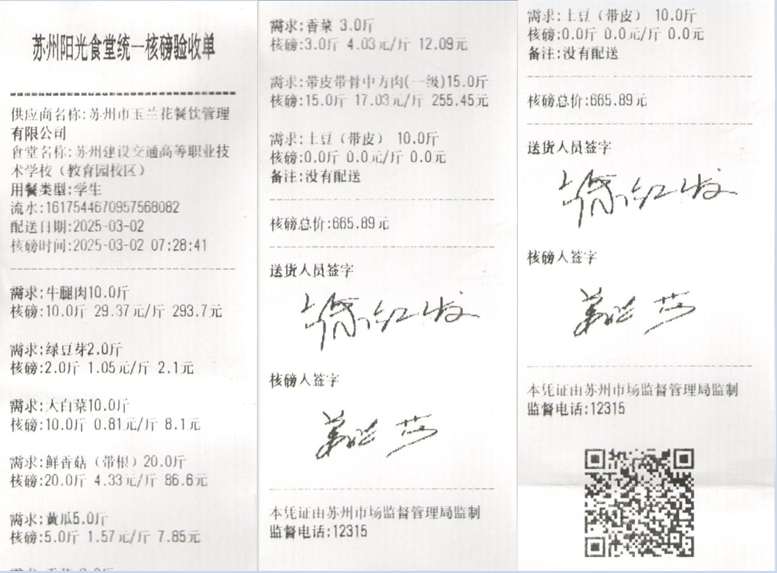 苏州阳光食堂统一核磅验收单
供应商名称:苏州市玉兰花餐饮管理
有限公司
食堂名称:苏州建设交通高等职业技
术学校（教育园校区）
用餐类型:学生
流水:1617544670957568082
配送日期:2025-03-02
核磅时间:2025-03-02 07:28:41
需求:牛腿肉10.0斤
核磅:10.0斤 29.37元/斤 293.7元
需求:绿豆芽2.0斤
核磅:2.0斤 1.05元/斤 2.1元
需求:大白菜10.0斤
核磅:10.0斤 0.81元/斤 8.1元
需求:鲜香菇（带根）20.0斤
核磅:20.0斤 4.33元/斤 86.6元
需求:黄瓜5.0斤
核磅:5.0斤 1.57元/斤 7.85元
需求:香菜 3.0斤
核磅:3.0斤 4.03元/斤 12.09元
需求:带皮带骨中方肉(一级)15.0斤
核磅:15.0斤 17.03元/斤 255.45元
需求:土豆（带皮） 10.0斤
核磅:0.0斤 0.0元/斤 0.0元
备注:没有配送
核磅总价:665.89元
送货人员签字
核磅人签字
本凭证由苏州市场监督管理局监制
监督电话:12315
需求:土豆（带皮） 10.0斤
核磅:0.0斤 0.0元/斤 0.0元
备注:没有配送
核磅总价:665.89元
送货人员签字
核磅人签字
本凭证由苏州市场监督管理局监制
监督电话:12315